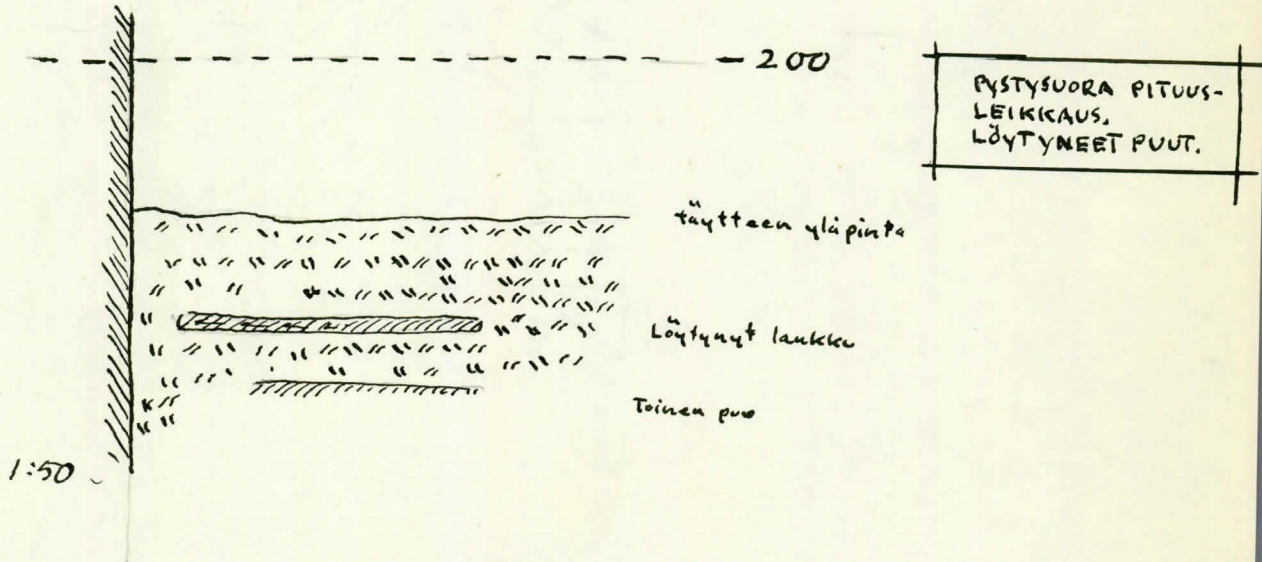 200
PYSTYSUORA PITUUS-
LEIKKAUS.
LÖYTYNEET PUUT.
täytteen yläpinta
Löytynyt laukku
Toinen puu
1:50